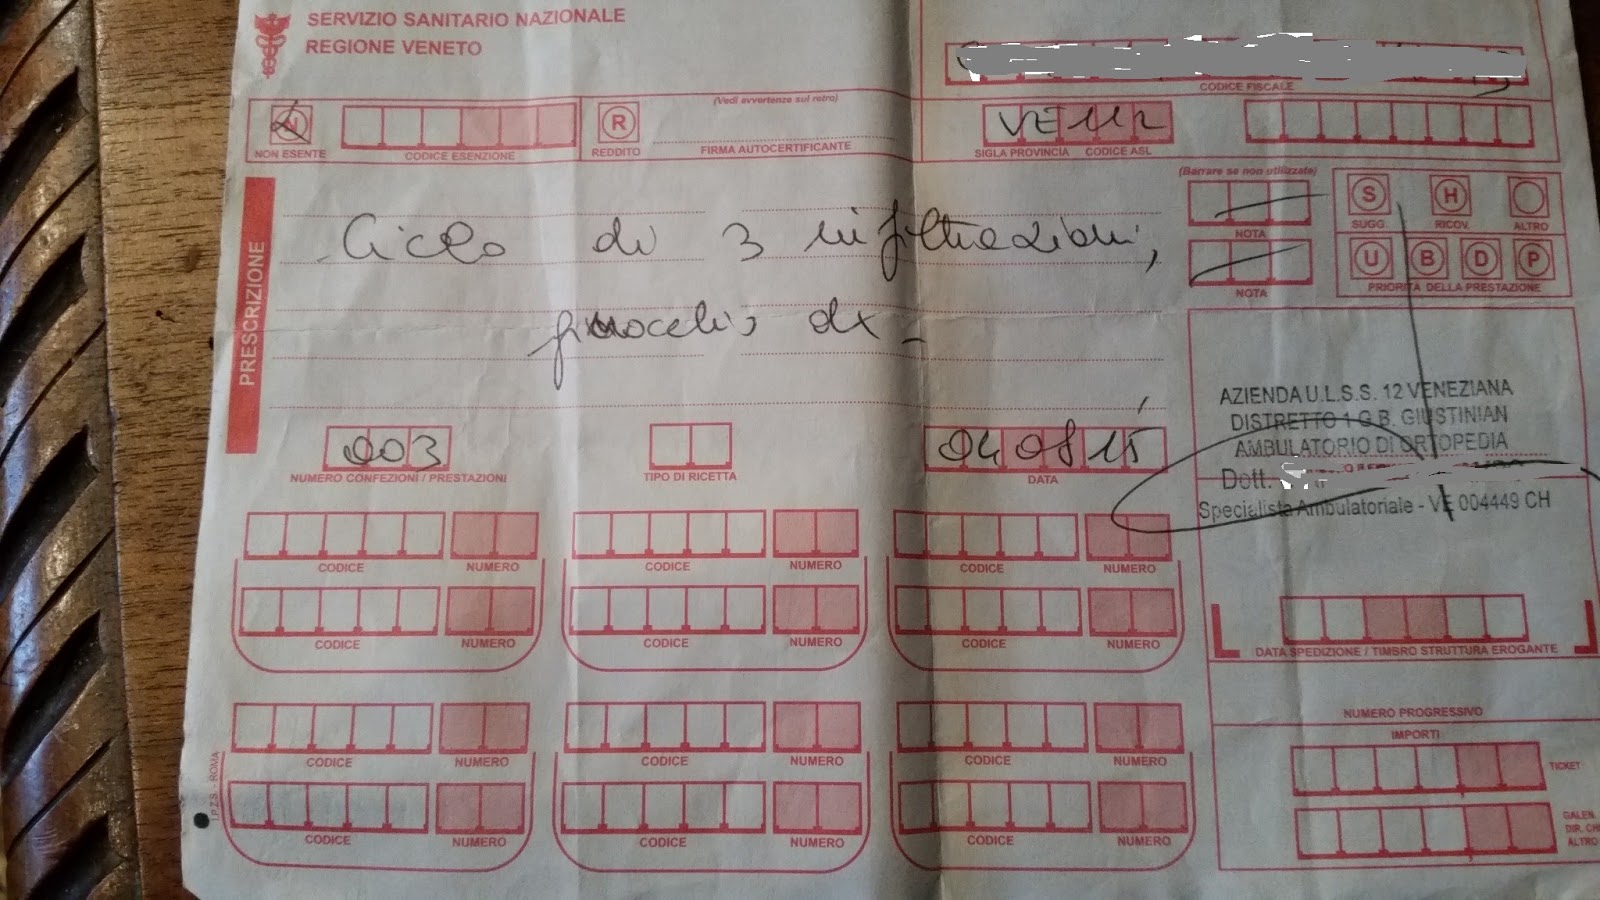 SERVIZIO SANITARIO NAZIONALE
REGIONE VENETO
CODICE FISCALE
N
NON ESENTE
CODICE ESENZIONE
R
REDDITO
(Vedi avvertenze sul retro)
FIRMA AUTOCERTIFICANTE
VE 112
SIGLA PROVINCIA CODICE ASL
PRESCRIZIONE
Ciclo di 3 infiltrazioni,
ginocchio dx -
(Barrare se non utilizzate)
NOTA
NOTA
S H
SUGG. RICOV. ALTRO
U B D P
PRIORITÀ DELLA PRESTAZIONE
003
NUMERO CONFEZIONI / PRESTAZIONI
TIPO DI RICETTA
040815
DATA
AZIENDA U.L.S.S. 12 VENEZIANA
DISTRETTO 1 G B. GIUSTINIAN
AMBULATORIO DI ORTOPEDIA
Dott.
Specialista Ambulatoriale - VE 004449 CH
CODICE NUMERO CODICE NUMERO CODICE NUMERO
CODICE NUMERO CODICE NUMERO CODICE NUMERO
DATA SPEDIZIONE / TIMBRO STRUTTURA EROGANTE
NUMERO PROGRESSIVO
IMPORTI
CODICE NUMERO CODICE NUMERO CODICE NUMERO
TICKET
CODICE NUMERO CODICE NUMERO CODICE NUMERO
GALEN.
DIR. CH
ALTRO
I.P.Z.S. - ROMA